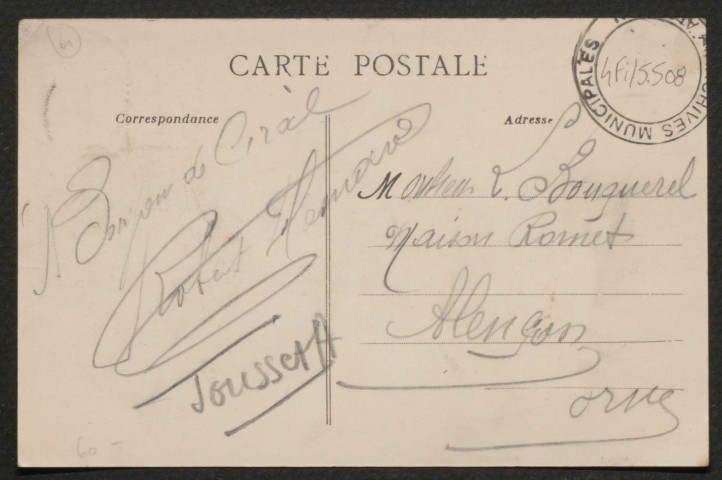 61
CARTE POSTALE
ARCHIVES MUNICIPALES
4Fi/5.508
Correspondance
Adresse
Bonjour de Ciral
Robert
Jousset
Monsieur L. Bouquerel
Maison Romet
Alençon
Orne
60 -